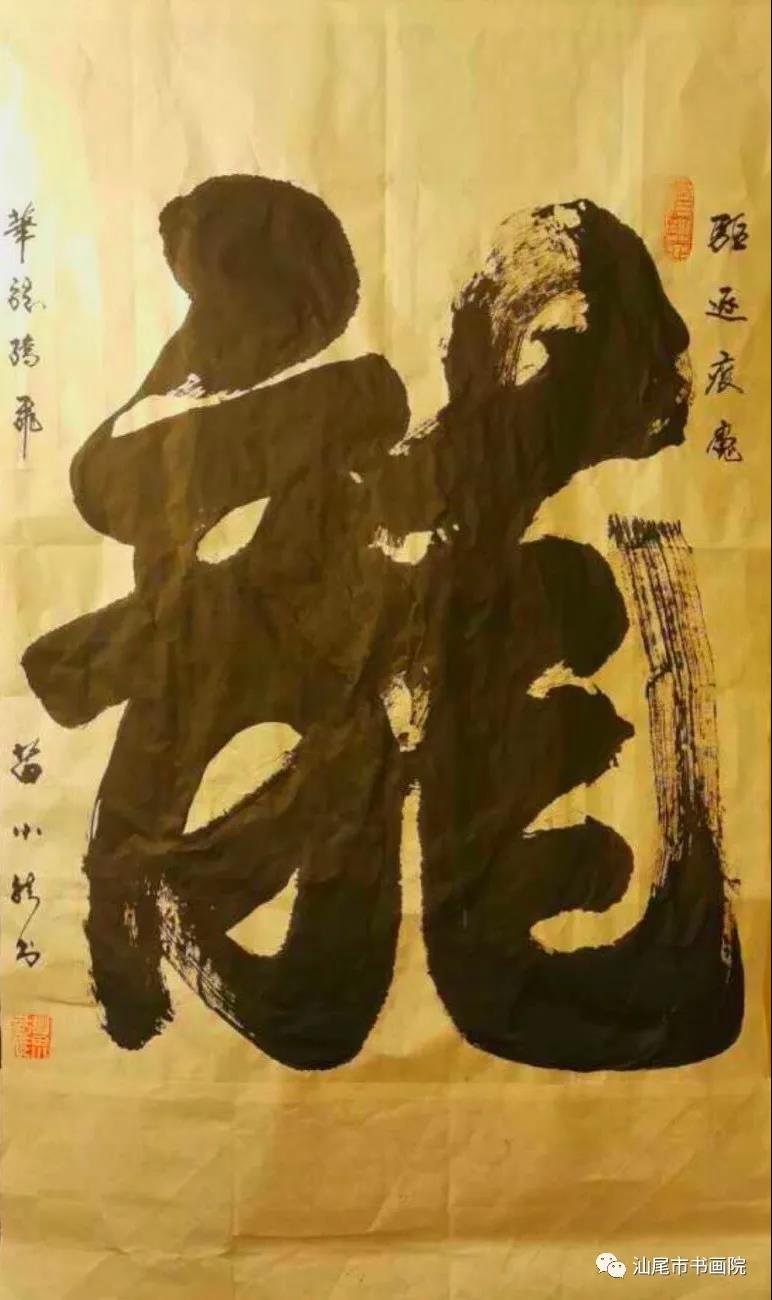 驅逐疫魔
龍
華龍騰飛
小龙书
汕尾市书画院